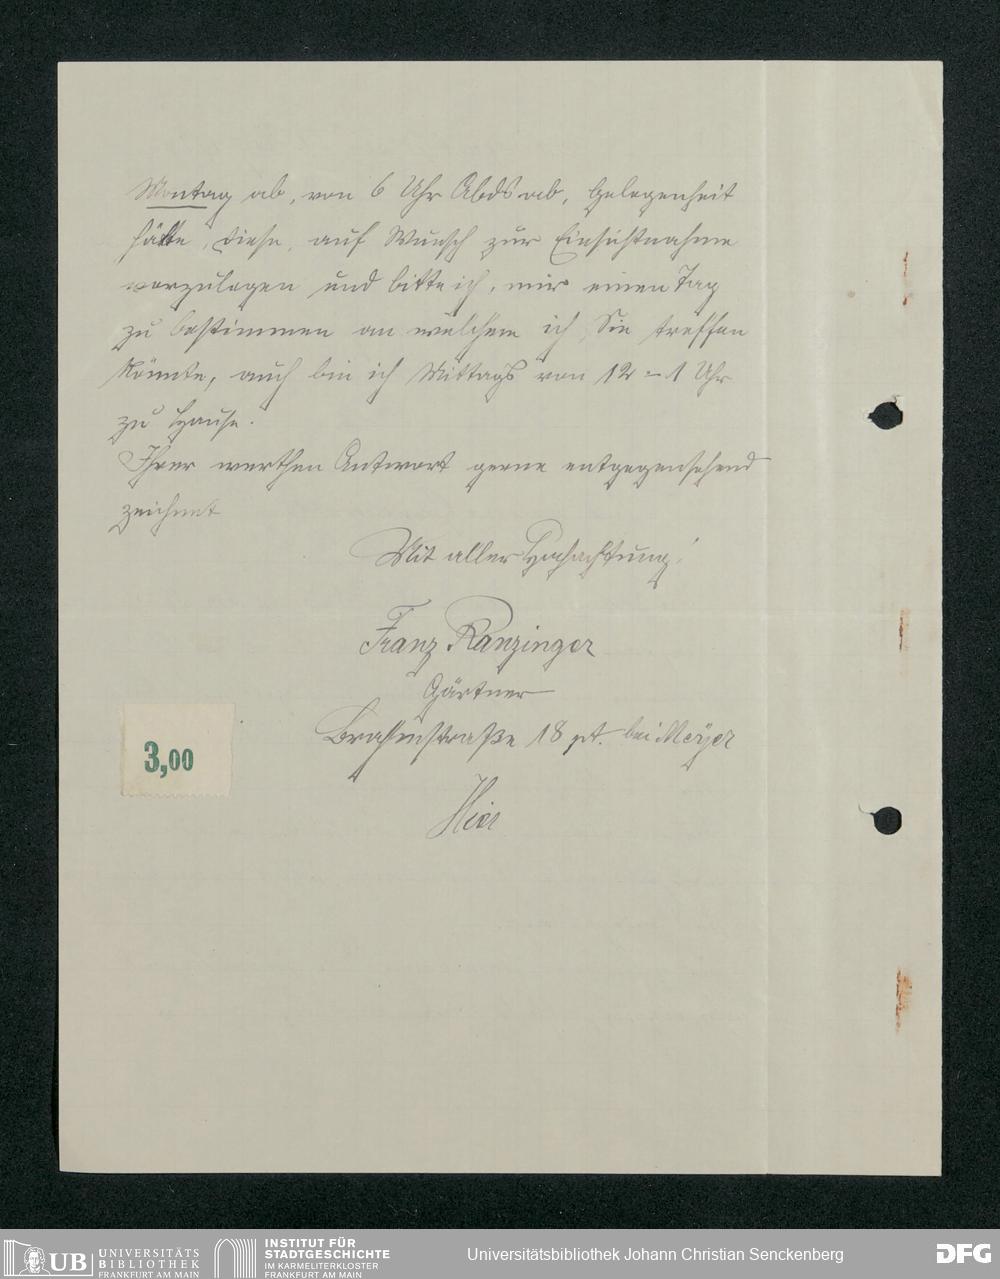 Montag ab, von 6 Uhr Abds ab, Gelegenheit
hätte, diese, auf Wunsch zur Einsichtnahme
vorzulegen und bitte ich, mir einen Tag
zu bestimmen an welchem ich Sie treffen
könnte, auch bin ich Mittags von 12 - 1 Uhr
zu Hause.
Ihrer werthen Antwort gerne entgegensehend
zeichnet
Mit aller Hochachtung!
Franz Ranzinger
Gärtner
18 pt. bei Meÿer
Hier
3,00
UB UNIVERSITÄTS
BIBLIOTHEK
FRANKFURT AM MAIN
INSTITUT FÜR
STADTGESCHICHTE
IM KARMELITERKLOSTER
FRANKFURT AM MAIN
Universitätsbibliothek Johann Christian Senckenberg
DFG